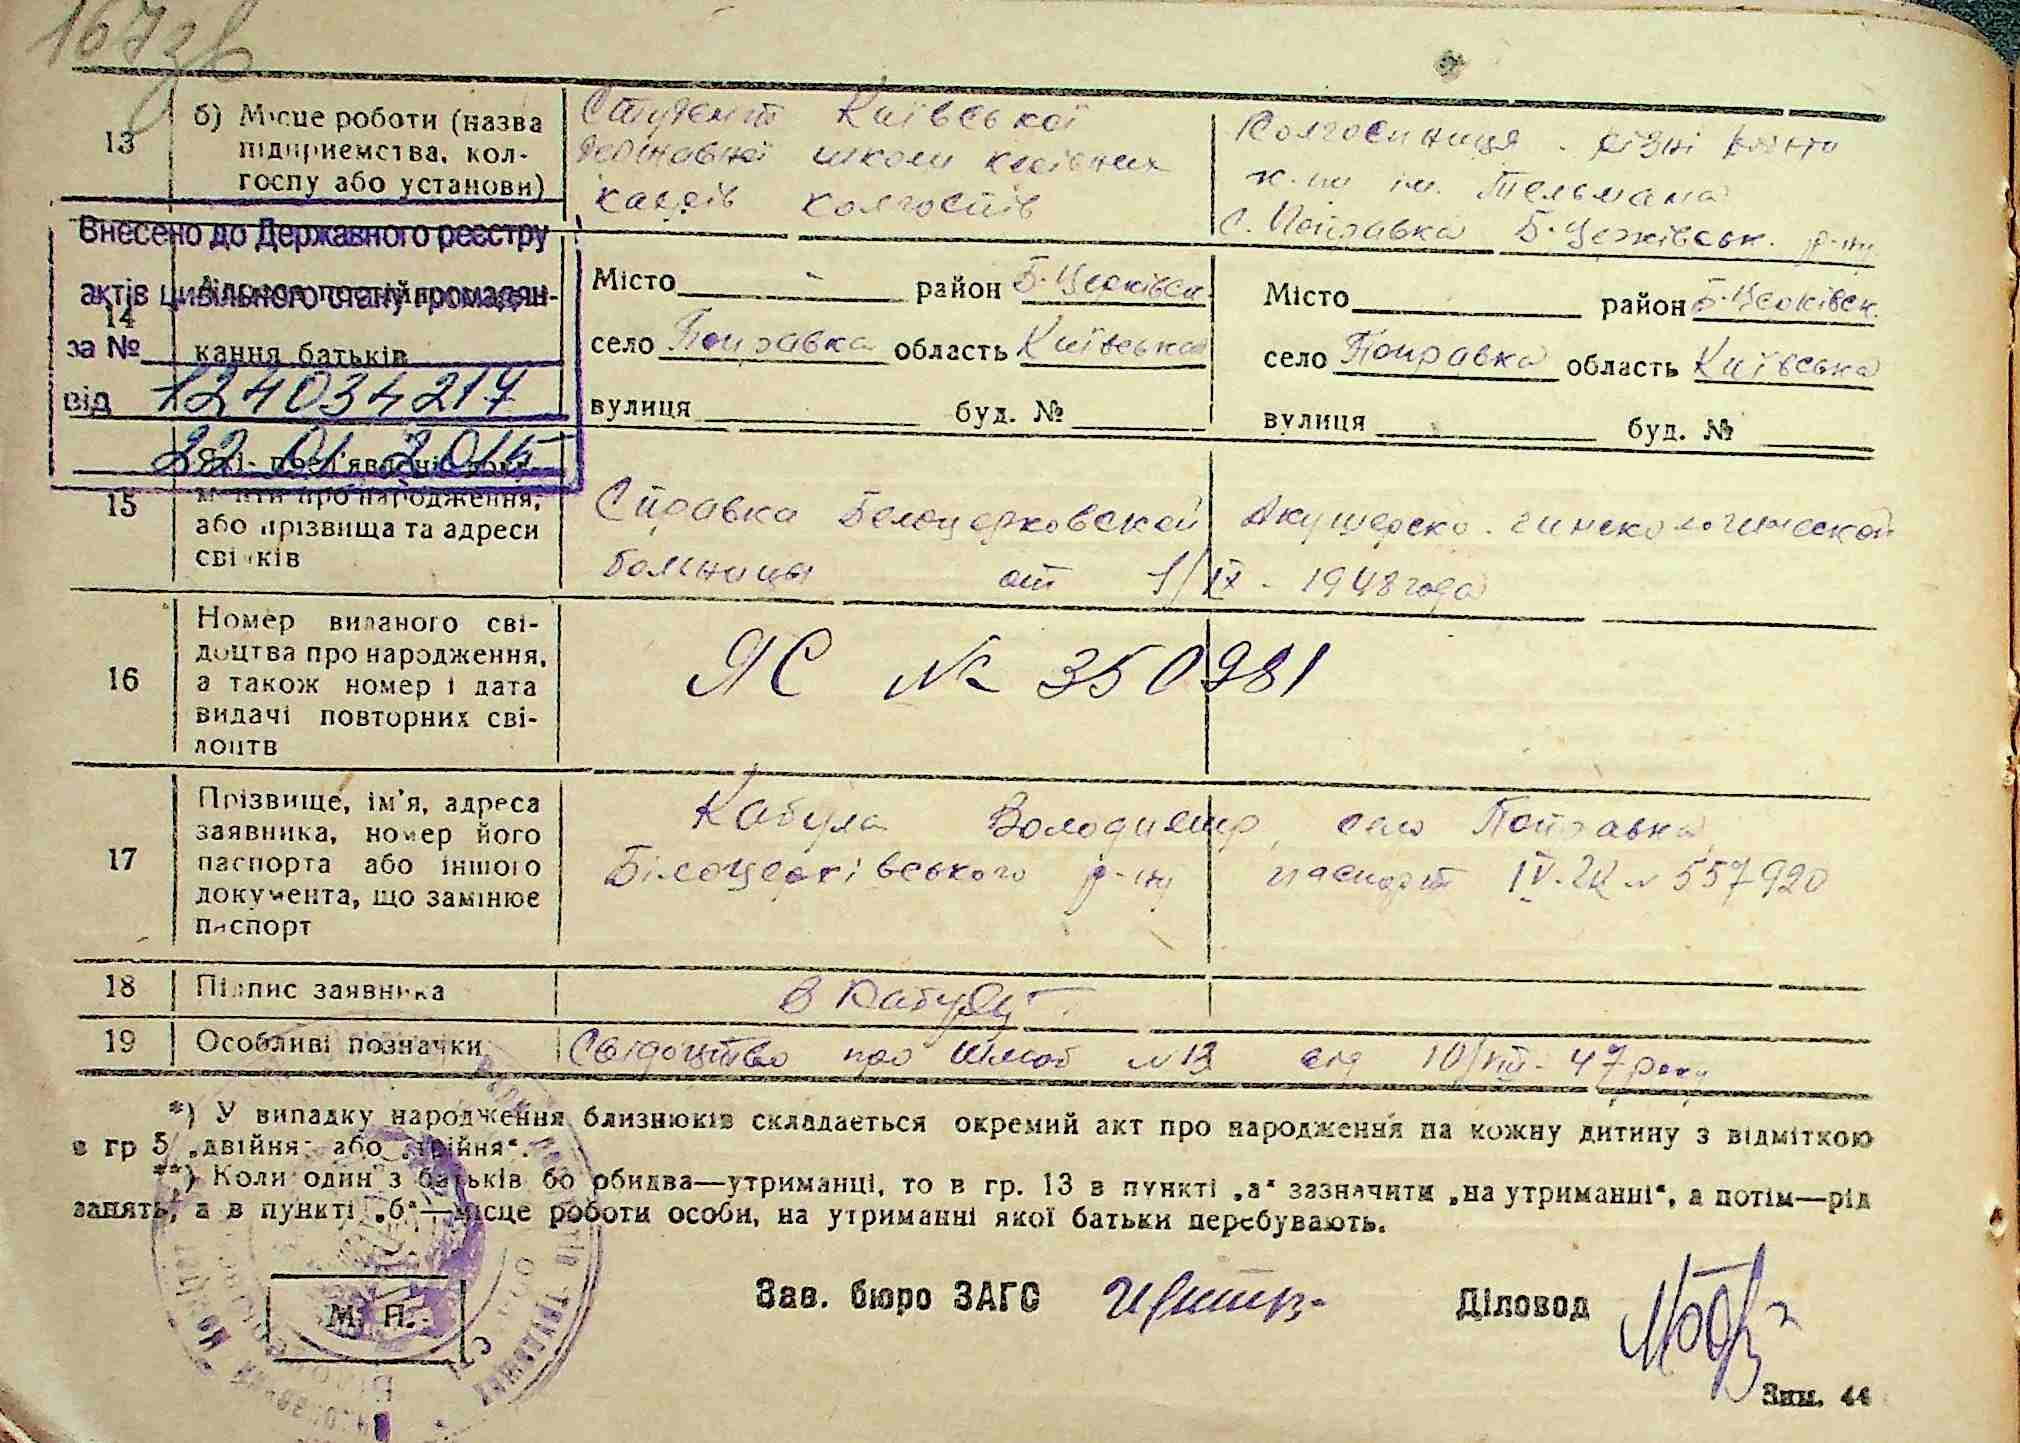 167зв
13
б) Місце роботи (назва
підприємства, кол-
госпу або установи)
Студент Київської
державної школи керівних
кадрів колгоспів
Колгоспниця - різні роботи
к-пи ім. Тельмана
с. Поправка Б-Церківськ. р-ну
Внесено до Державного реєстру
актів цивільного стану громадян
за №
124034217
від
22 01 2015
14
кання батьків
Місто район Б-Церківськ.
село Поправка область Київська
вулиця буд. №
Місто район Б-Церківськ.
село Поправка область Київська
вулиця буд. №
15
менти про народження,
або прізвища та адреси
свідків
Справка Белоцерковской Акушерско-гинекологической
больницы от 1/IX - 1948 года
16
Номер виданого сві-
доцтва про народження,
а також номер і дата
видачі повторних сві-
доцтв
ЯС № 350981
17
Прізвище, ім'я, адреса
заявника, номер його
паспорта або іншого
документа, що замінює
паспорт
Кабула Володимир, село Поправка,
Білоцерківського р-ну паспорт IV-ЖК № 557920
18
Підпис заявника
В Кабула
19
Особливі позначки
Свідоцтво про шлюб №13 від 10/VIII-47 року
*) У випадку народження близнюків складається окремий акт про народження на кожну дитину з відміткою
в гр 5 „двійня“ або „трійня“.
**) Коли один з батьків бо обидва—утриманці, то в гр. 13 в пункті „а“ зазначити „на утриманні“, а потім—рід
занять, а в пункті „б“—місце роботи особи, на утриманні якої батьки перебувають.
М. П.
Зав. бюро ЗАГС
Діловод
Зим. 44